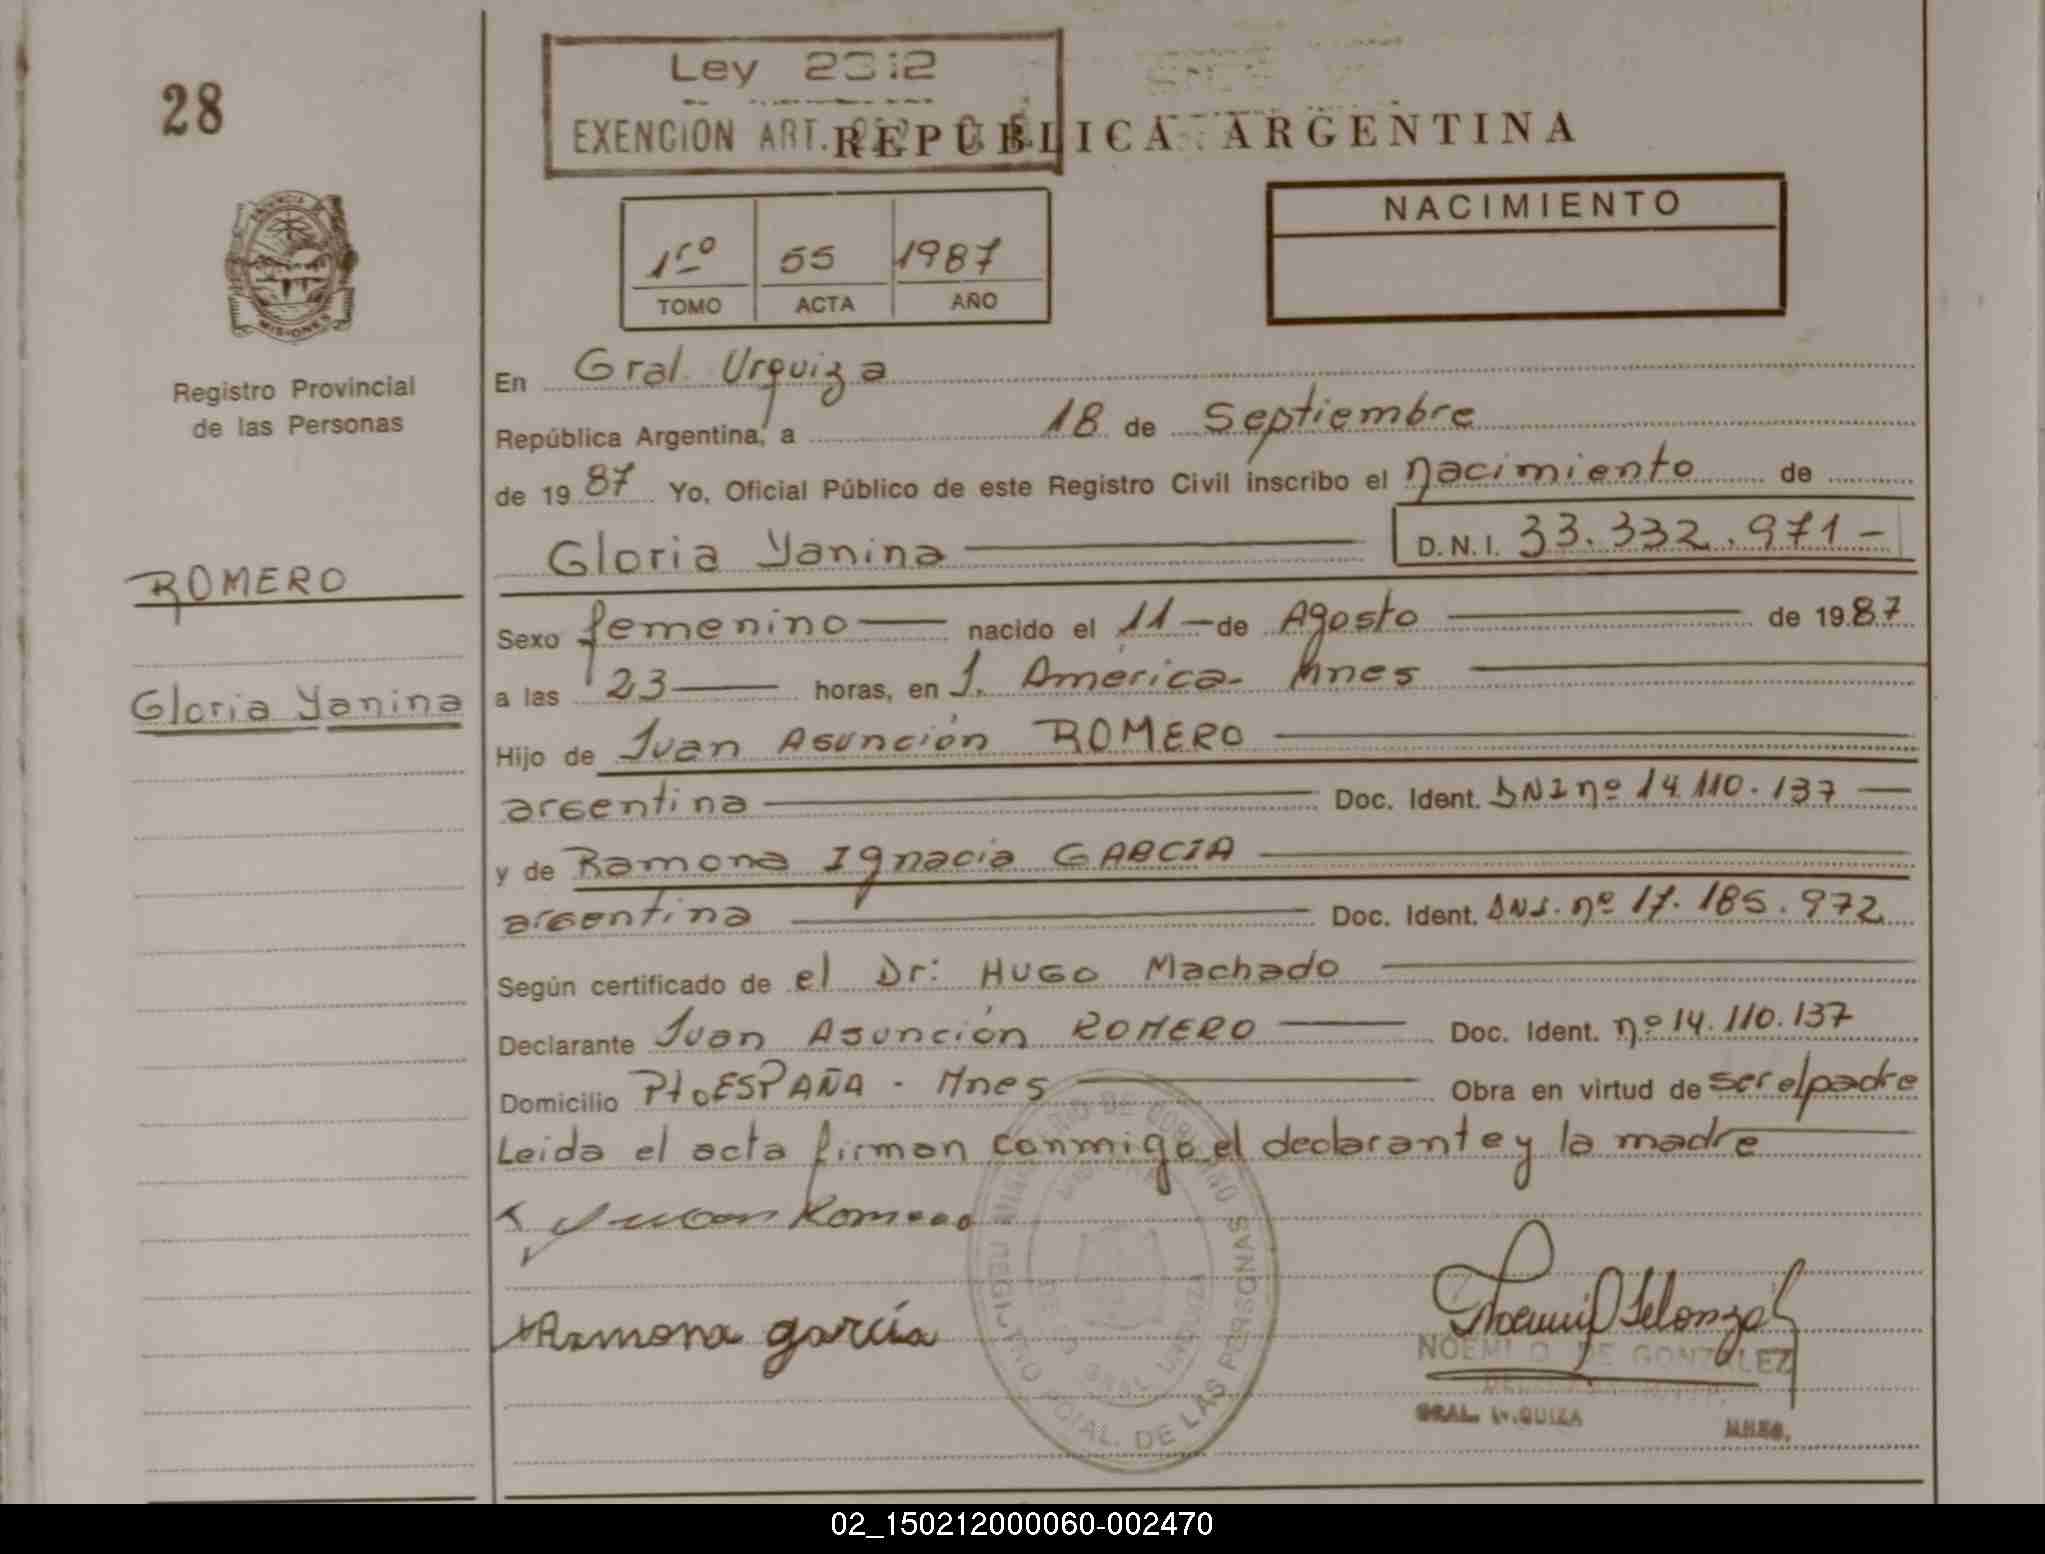 28
Ley 2312
EXENCION ART.
REPUBLICA ARGENTINA
NACIMIENTO
1ro 55 1987
TOMO ACTA AÑO
MISIONES
Registro Provincial
de las Personas
ROMERO
Gloria Yanina
En Gral. Urquiza
República Argentina, a 18 de Septiembre
de 19 87 Yo, Oficial Público de este Registro Civil inscribo el nacimiento de
Gloria Yanina D.N.I. 33.332.971-
Sexo femenino nacido el 11 de Agosto de 19 87
a las 23 horas, en J. América- Mnes
Hijo de Juan Asunción ROMERO
argentina Doc. Ident. DNI nº 14.110.137
y de Ramona Ignacia GARCIA
argentina Doc. Ident. DNI. nº 17.185.972
Según certificado de el Dr: HUGO Machado
Declarante Juan Asunción ROMERO Doc. Ident. nº 14.110.137
Domicilio Pto ESPAÑA - Mnes Obra en virtud de ser el padre
Leida el acta firman conmigo el declarante y la madre
Juan Romero
Ramona garcía
REGISTRO PCIAL. DE LAS PERSONAS
GRAL. URQUIZA
NOEMI O. DE GONZALEZ
GRAL. URQUIZA MNES.
02_150212000060-002470